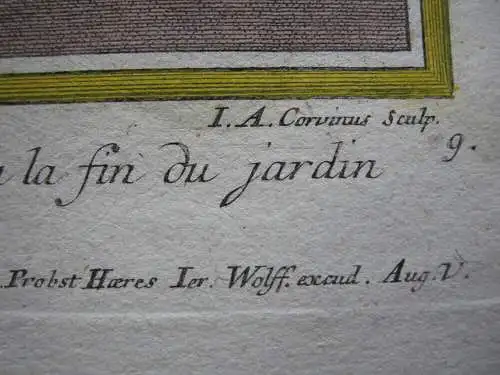 I. A. Corvinus Sculp.
la fin du jardin
9.
Probst Hæres Ier. Wolff. excud. Aug. V.